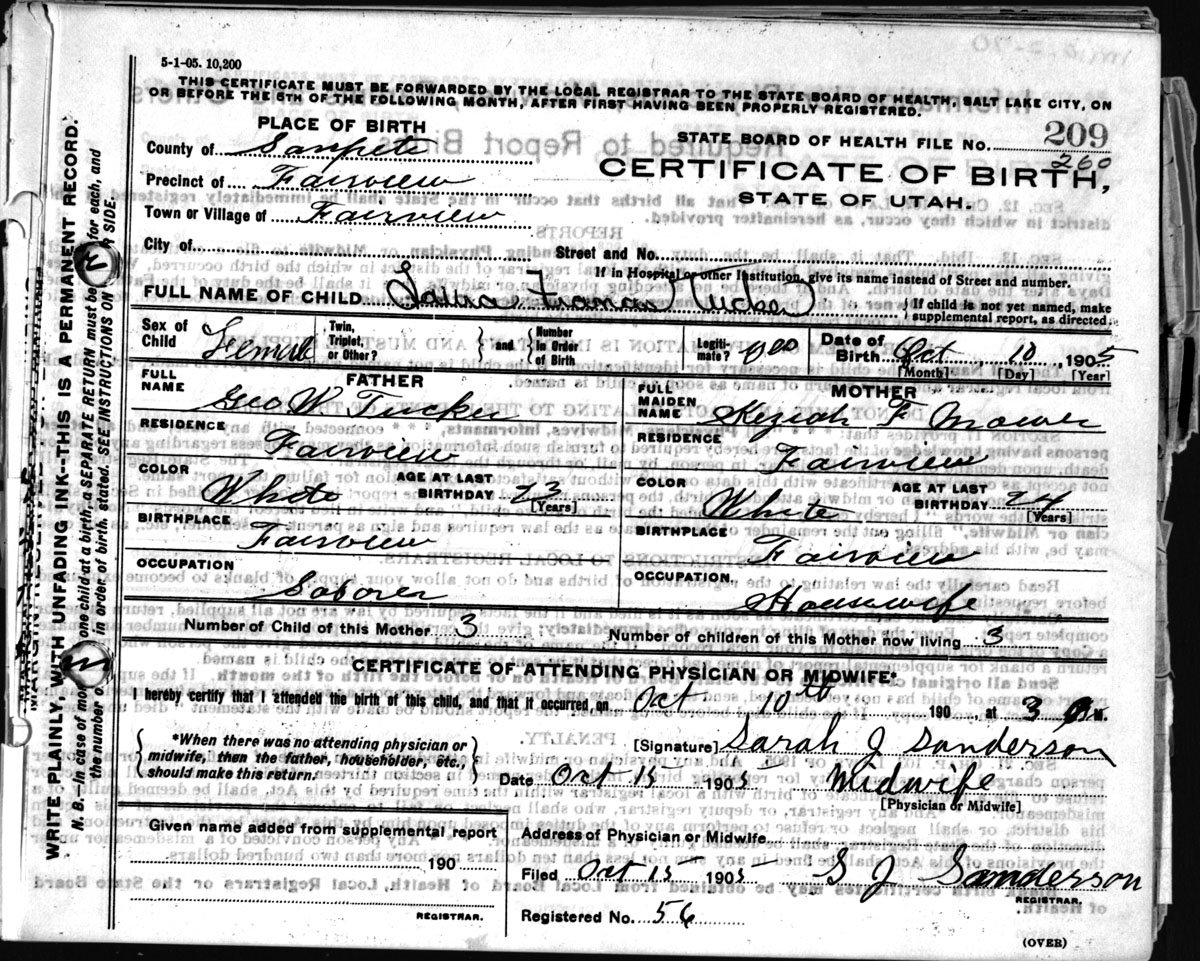 5-1-05. 10,200
THIS CERTIFICATE MUST BE FORWARDED BY THE LOCAL REGISTRAR TO THE STATE BOARD OF HEALTH, SALT LAKE CITY, ON
OR BEFORE THE 5TH OF THE FOLLOWING MONTH, AFTER FIRST HAVING BEEN PROPERLY REGISTERED.
PLACE OF BIRTH
STATE BOARD OF HEALTH FILE No. 209
260
County of Sanpete
CERTIFICATE OF BIRTH,
Precinct of Fairview
STATE OF UTAH.
Town or Village of Fairview
City of
Street and No.
If in Hospital or other Institution, give its name instead of Street and number.
FULL NAME OF CHILD Tucker
If child is not yet named, make
supplemental report, as directed.
Sex of Child Female
Twin, Triplet, or Other?
and
Number in Order of Birth
Legiti-mate?
Date of Birth Oct 10 1905
[Month] [Day] [Year]
FATHER
MOTHER
FULL NAME Geo W Tucker
FULL MAIDEN NAME Keziah F Mower
RESIDENCE Fairview
RESIDENCE Fairview
COLOR White
AGE AT LAST BIRTHDAY 23 [Years]
COLOR White
AGE AT LAST BIRTHDAY 24 [Years]
BIRTHPLACE Fairview
BIRTHPLACE Fairview
OCCUPATION Laborer
OCCUPATION Housewife
Number of Child of this Mother 3
Number of children of this Mother now living 3
CERTIFICATE OF ATTENDING PHYSICIAN OR MIDWIFE*
I hereby certify that I attended the birth of this child, and that it occurred on Oct 10th 190 , at 3 M.
*When there was no attending physician or
midwife, then the father, householder, etc.,
should make this return.
[Signature] Sarah J Sanderson
Date Oct 15 1905 Midwife
[Physician or Midwife]
Given name added from supplemental report
190
REGISTRAR.
Address of Physician or Midwife
Filed Oct 15 1905 S J Sanderson
REGISTRAR.
Registered No. 56
(OVER)
WRITE PLAINLY, WITH UNFADING INK--THIS IS A PERMANENT RECORD.
N. B.--In case of more one child at a birth, a SEPARATE RETURN must be for each, and
the number o in order of birth, stated. SEE INSTRUCTIONS ON R SIDE.